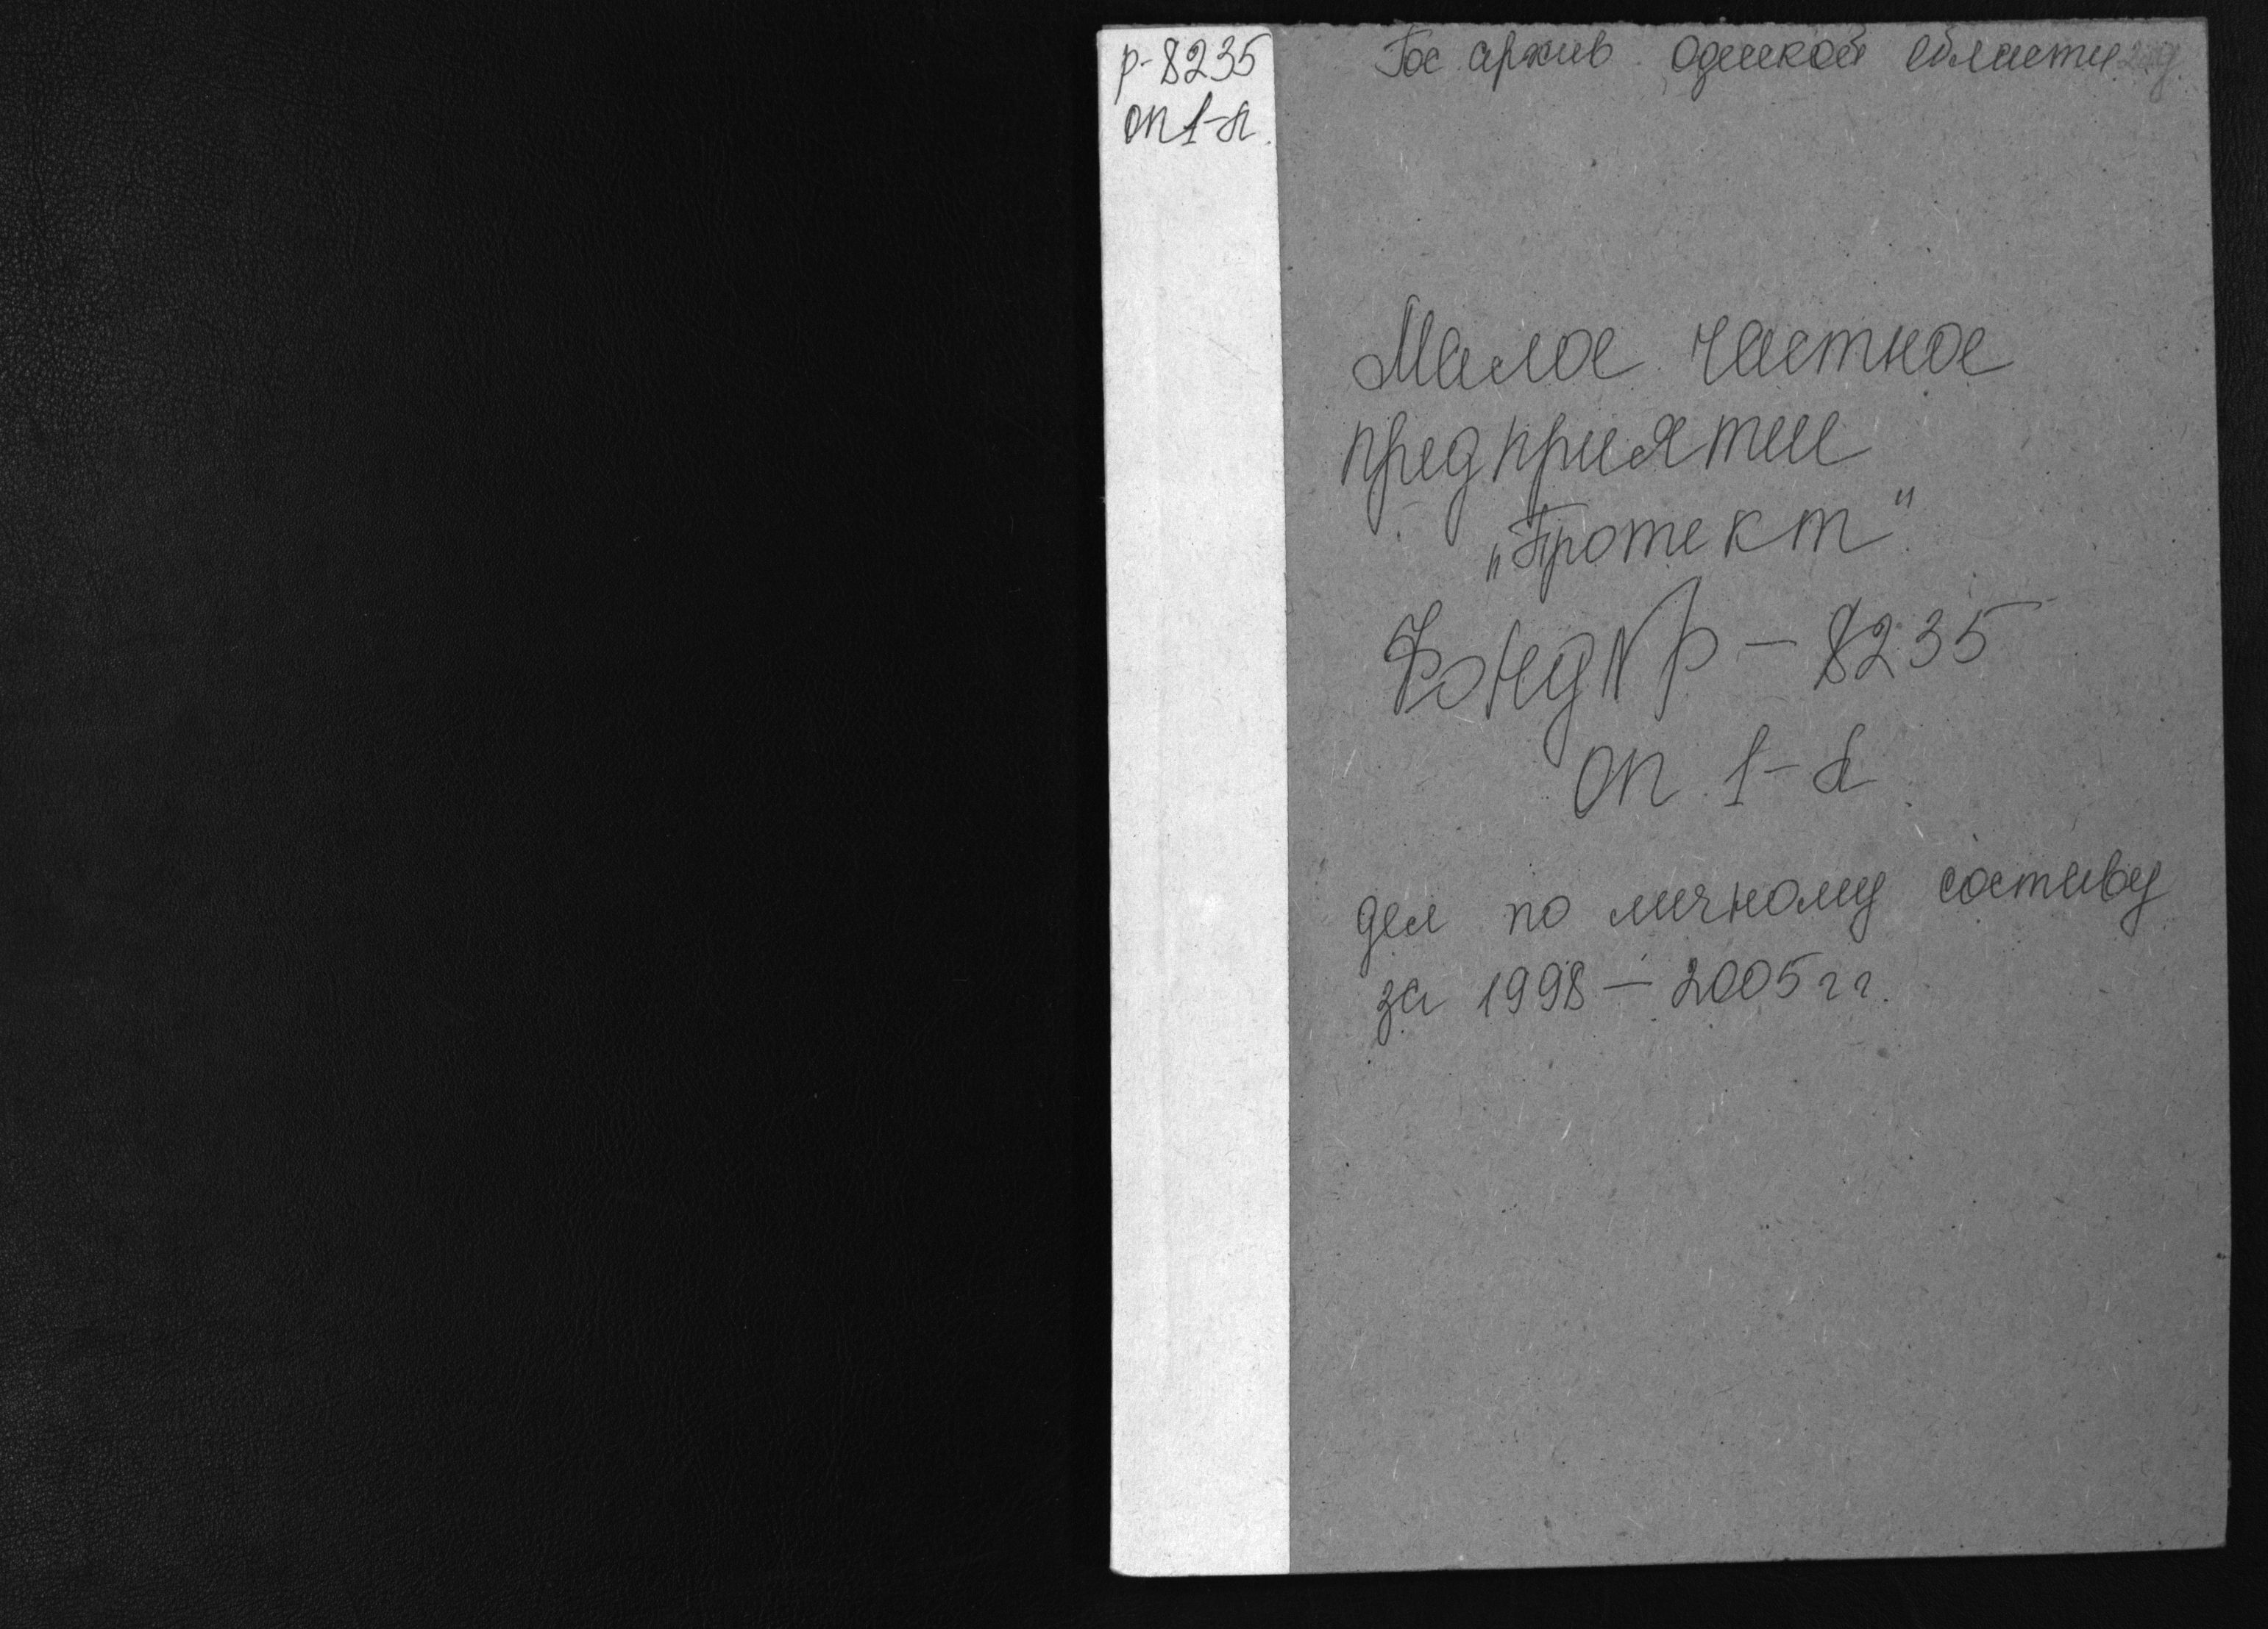 р-8235
оп 1-л.
Гос архив одесской области
Малое частное
предприятие
„Протект"
Фонд N р - 8235
оп 1-л
дел по личному составу
за 1998 - 2005 г г.